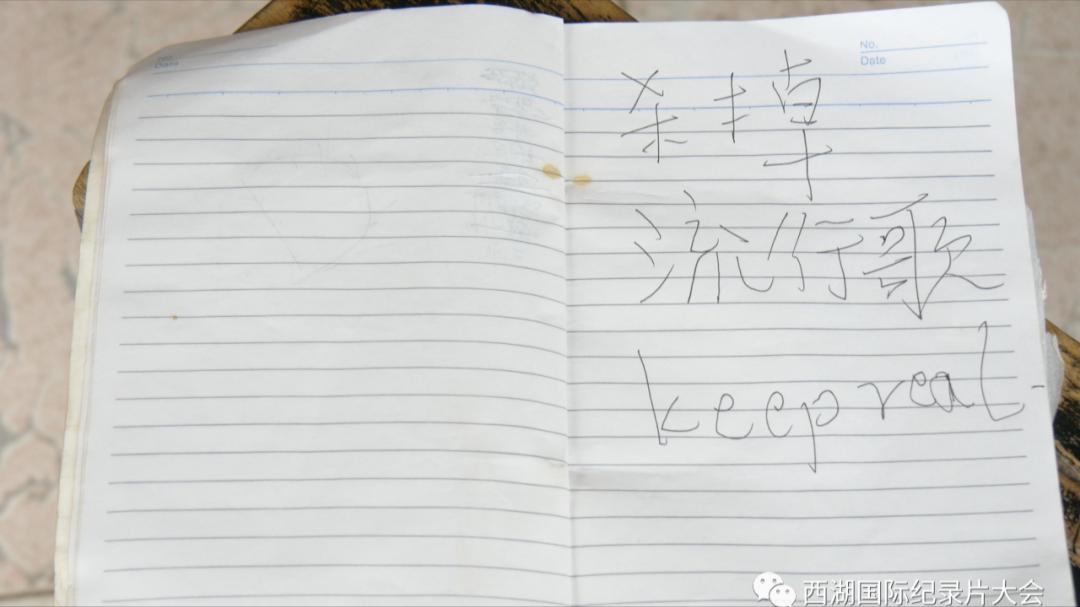 No.
Date
Date
杀掉
流行歌
keep real
西湖国际纪录片大会